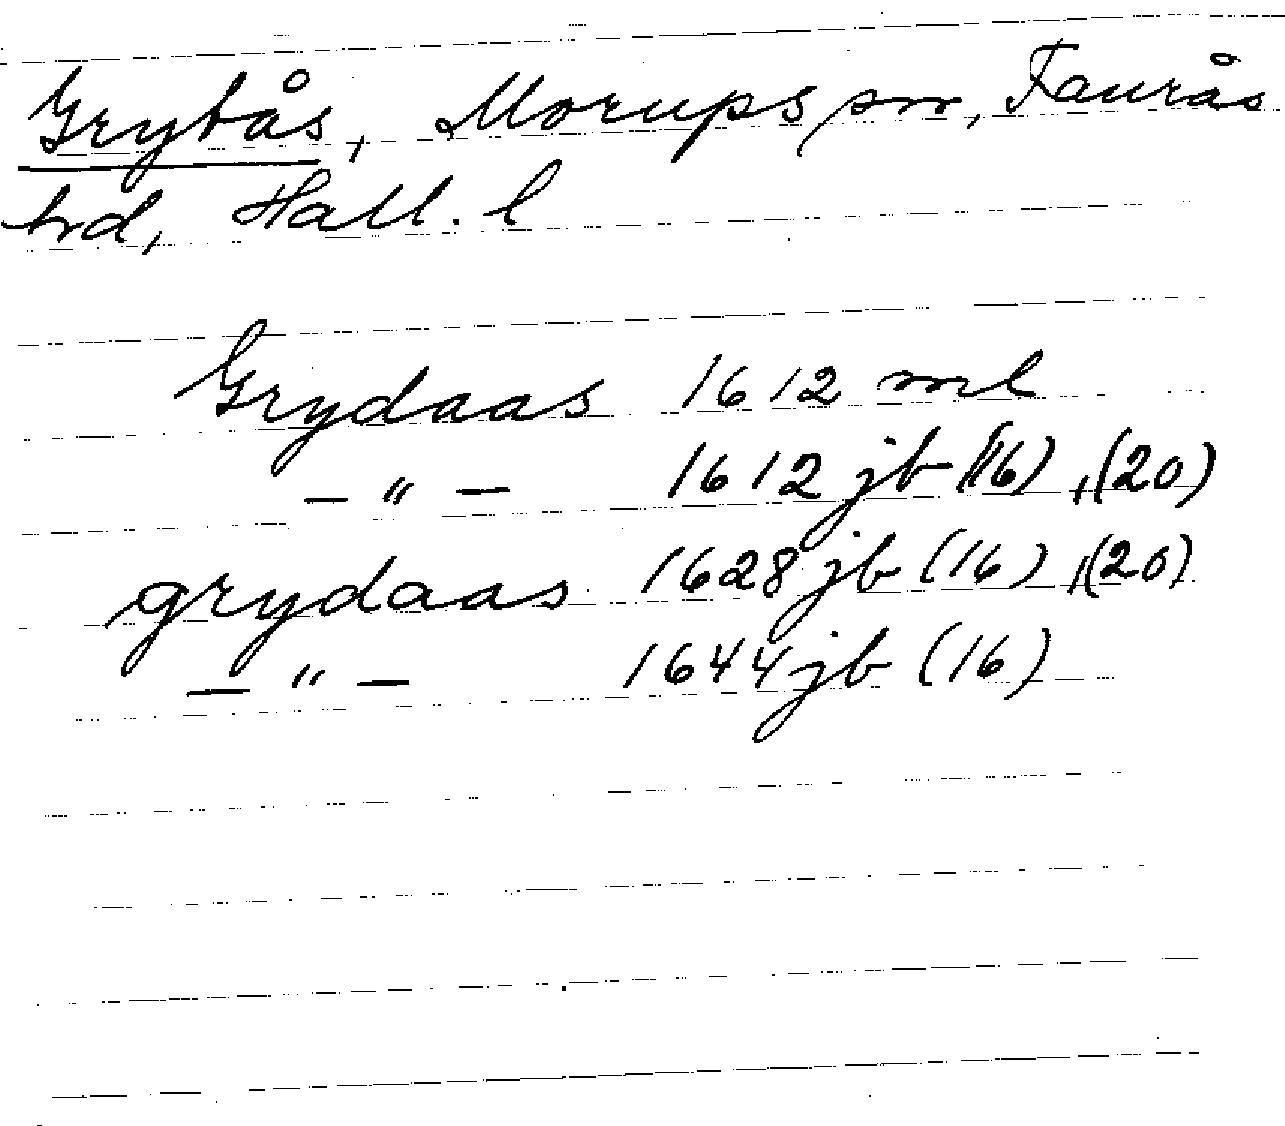 Grytås, Morups sn, Faurås
hd, Hall. l
Grydaas 1612 ml
— " — 1612 jb (16), (20)
grydaas 1628 jb (16), (20)
— " — 1644 jb (16)